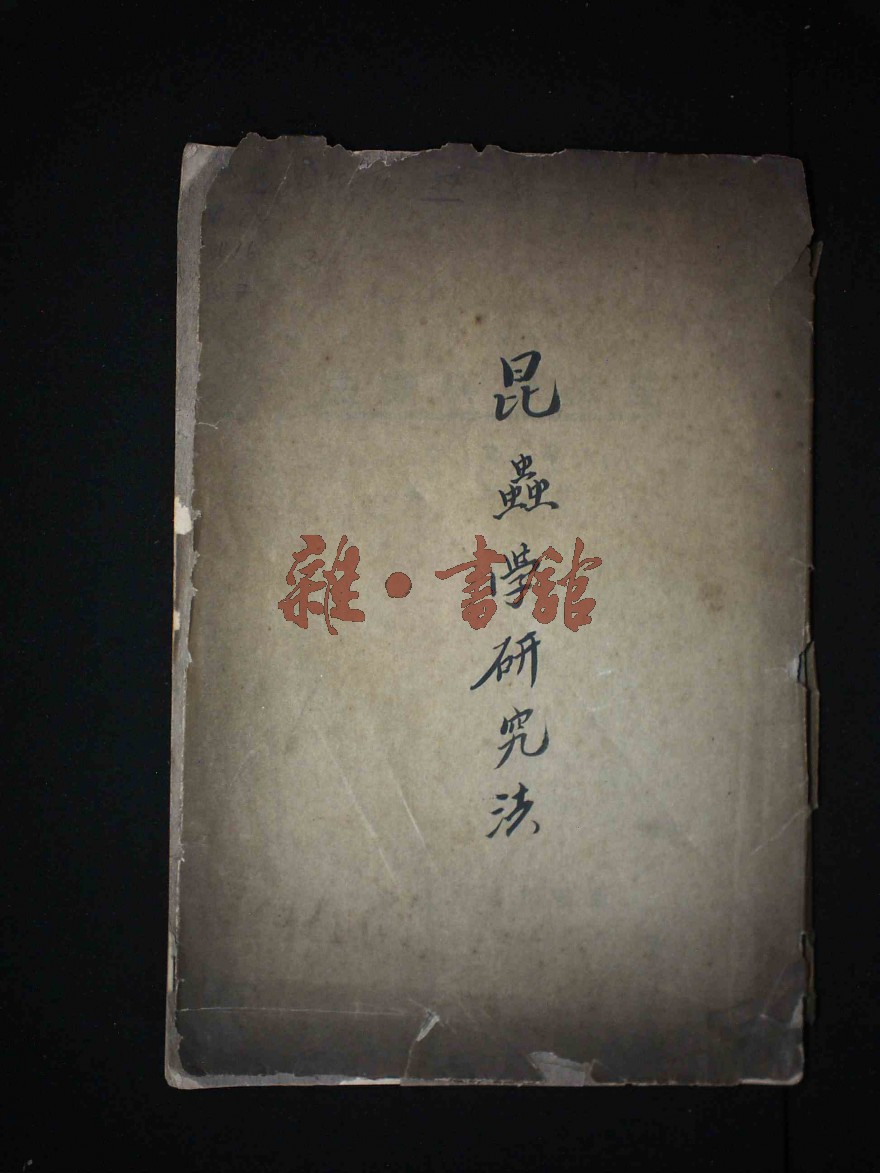 昆蟲學研究法
雜·書館